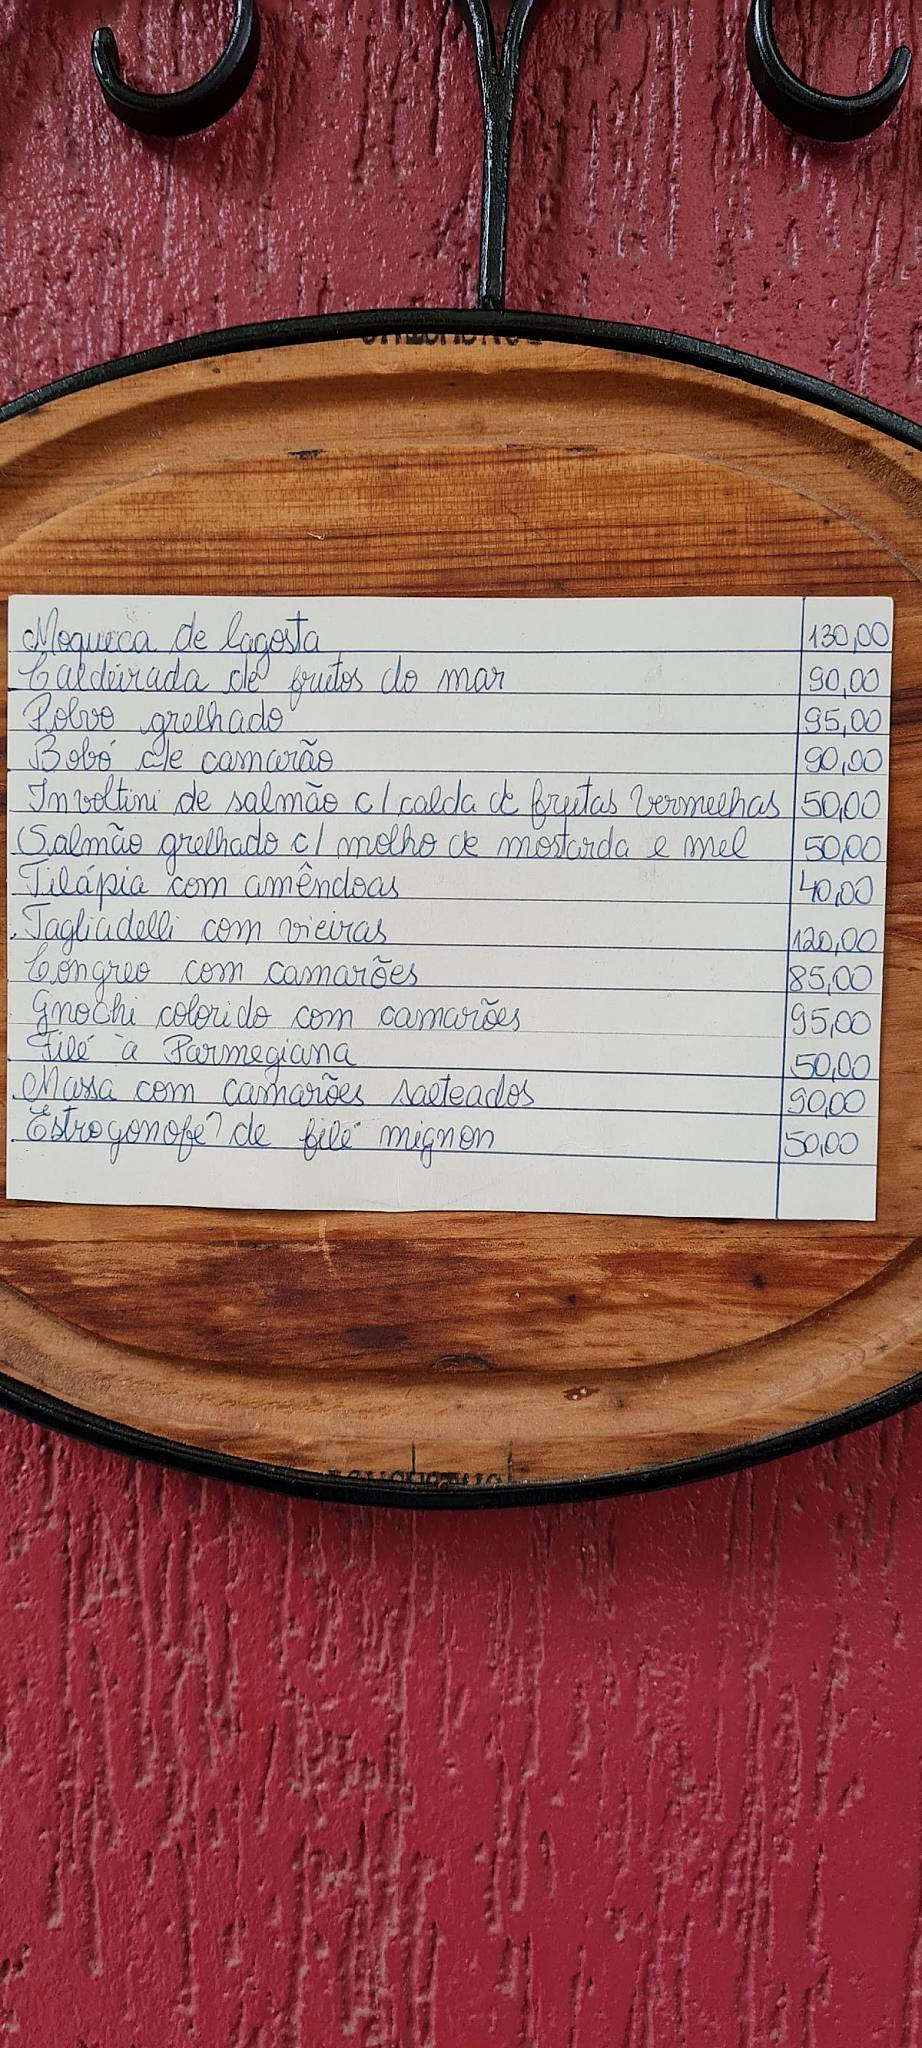 Moqueca de lagosta 130,00
Caldeirada de frutos do mar 90,00
Polvo grelhado 95,00
Bobó de camarão 90,00
Involtini de salmão c/ calda de frutas vermelhas 50,00
Salmão grelhado c/ molho de mostarda e mel 50,00
Tilápia com amêndoas 40,00
Tagliadelli com vieiras 120,00
Congreo com camarões 85,00
Gnochi colorido com camarões 95,00
Filé à Parmegiana 50,00
Massa com camarões salteados 90,00
Estrogonofe de filé mignon 50,00